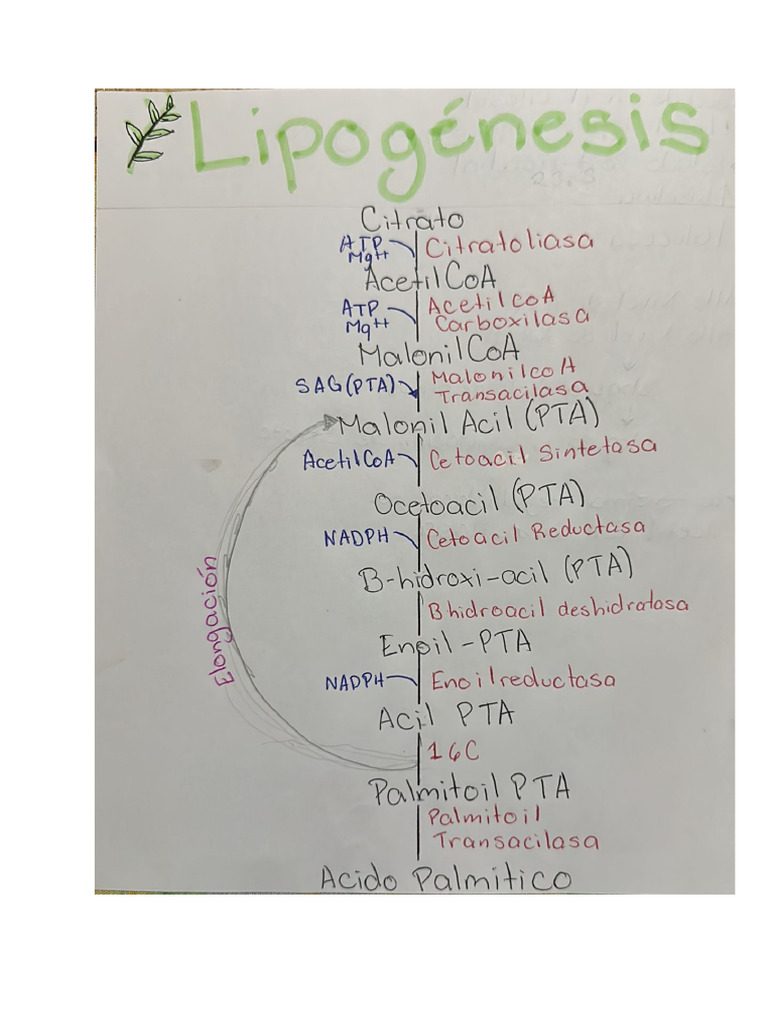 Lipogénesis
Citrato
ATP
Mg++
Citratoliasa
Acetil CoA
ATP
Mg++
Acetil coA
Carboxilasa
Malonil CoA
SAG (PTA)
Malonil coA
Transacilasa
Malonil Acil (PTA)
Acetil CoA
Cetoacil Sintetasa
Ocetoacil (PTA)
NADPH
Cetoacil Reductasa
B-hidroxi-acil (PTA)
B hidroacil deshidratasa
Enoil-PTA
NADPH
Enoilreductasa
Acil PTA
16C
Elongación
Palmitoil PTA
Palmitoil
Transacilasa
Acido Palmitico